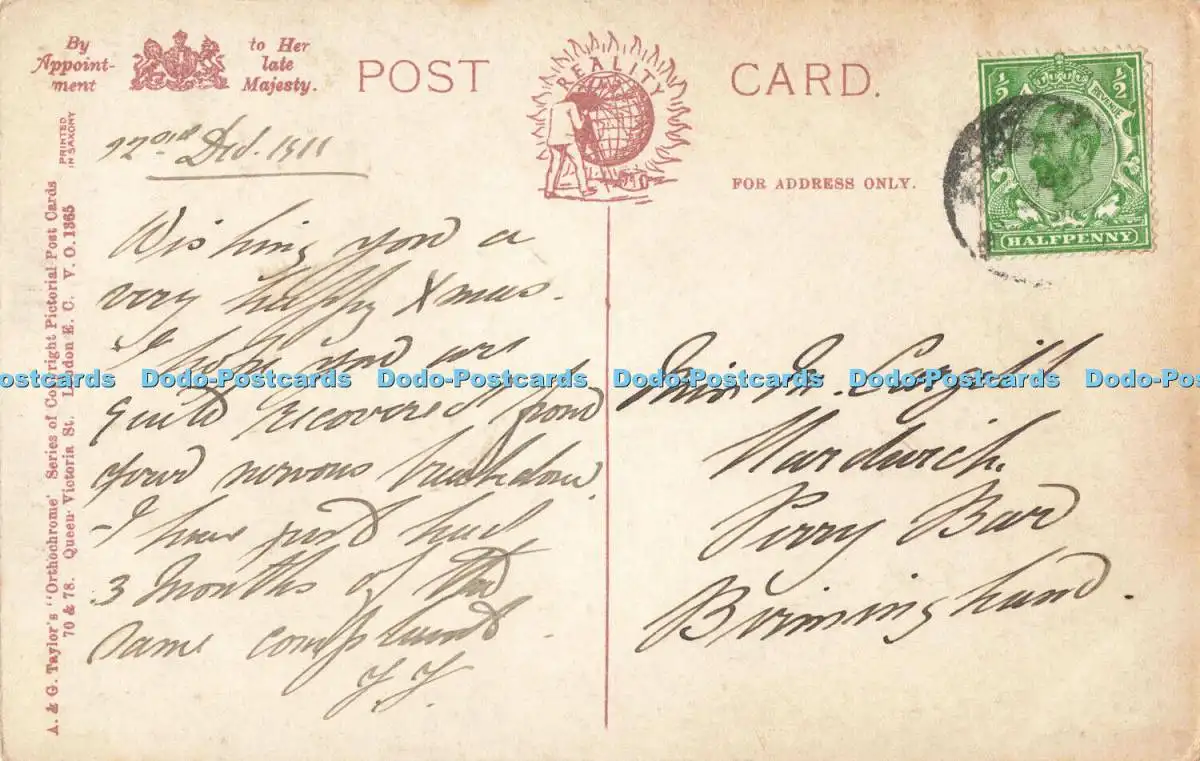 By
Appoint-
ment
to Her
late
Majesty.
POST CARD.
REALITY
FOR ADDRESS ONLY.
½ ½
REVENUE
HALFPENNY
PRINTED
IN SAXONY
A. & G. Taylor's "Orthochrome" Series of Copyright Pictorial Post Cards
70 & 78. Queen Victoria St. London E. C. V. O. 1365
22nd Dec. 1911
Wishing you a
very happy Xmas.
I hope you are
quite recovered from
your nervous breakdown.
I have just had
3 months of the
same complaint.
Miss M.
Perry Bar
Birmingham.
Dodo-Postcards Dodo-Postcards Dodo-Postcards Dodo-Postcards Dodo-Postcards